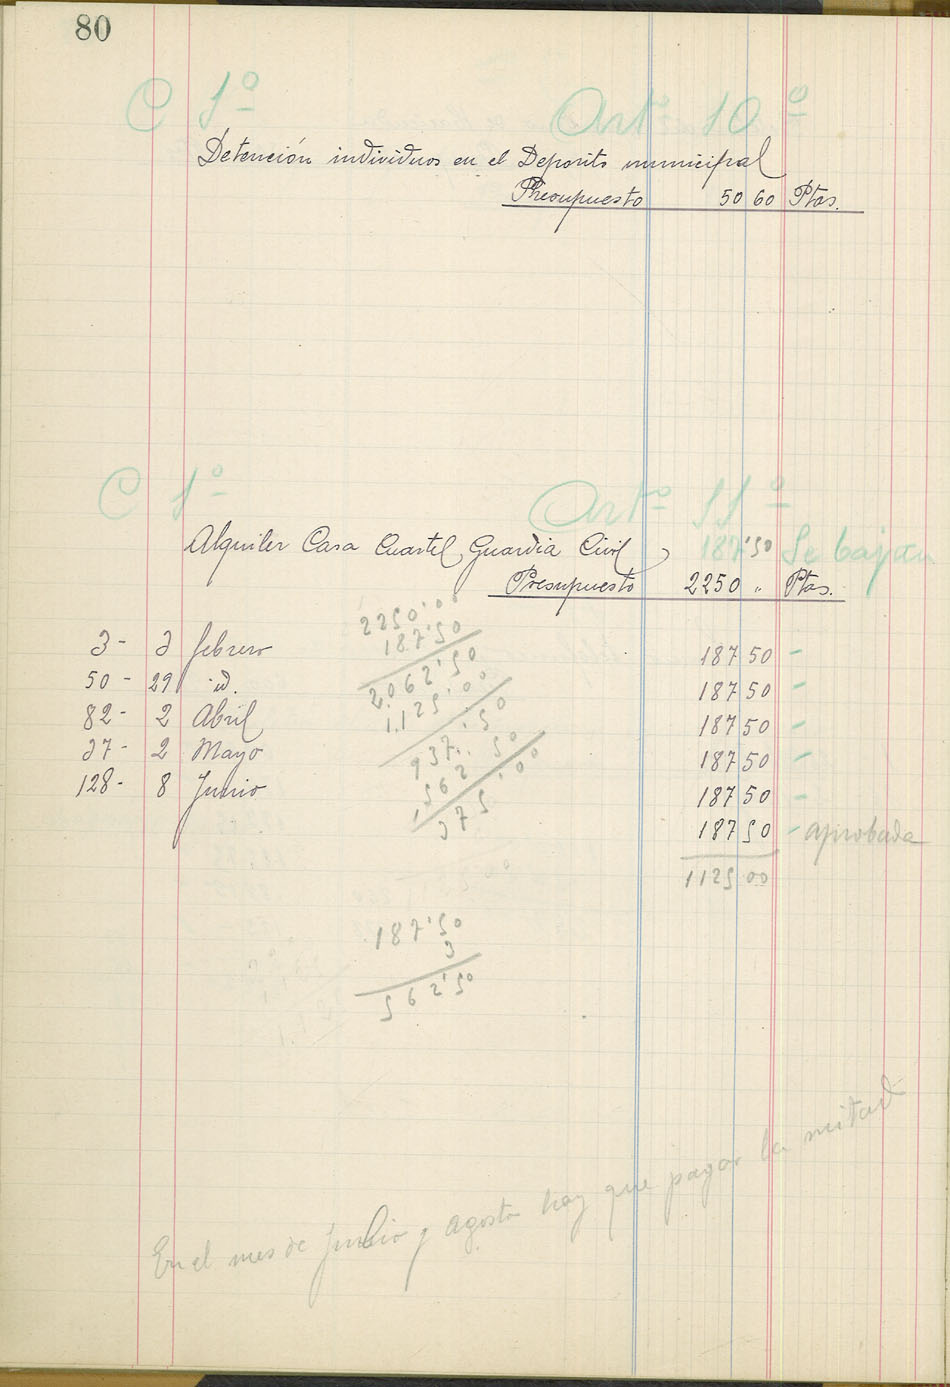 80
C 1º Artº 10º
Detención individuos en el Deposito municipal
Presupuesto 50 60 Ptas.
C 1º Artº 11º
Alquiler Casa Cuartel Guardia Civil, 187'50 Se bajan
Presupuesto 2250 " Ptas.
2250'00
187'50
3 - 3 febrero 187 50 -
2.062'50
50 - 29 id. 187 50 -
1.125'00
82 - 2 Abril 187 50 -
937'50
37 - 2 Mayo 187 50 -
562'50
128 - 8 Junio 187 50 -
375'00
187 50 - aprobada
1125 00
187'50
3
562'50
En el mes de Junlio y agosto hay que pagar la mitad